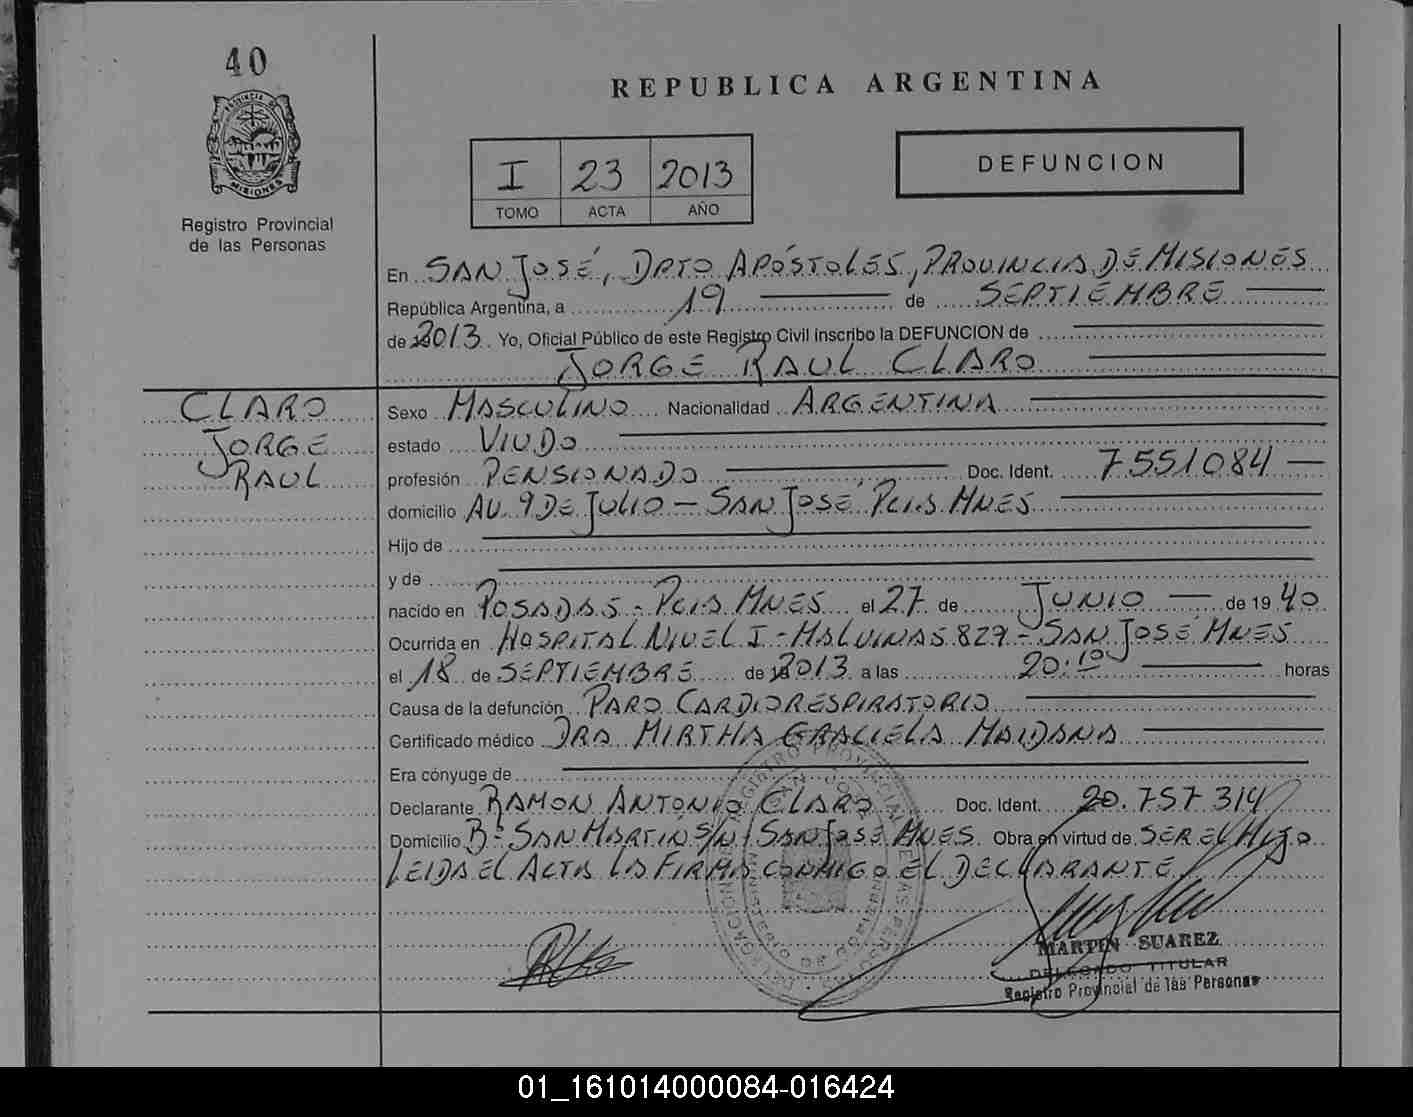 40
PROVINCIA DE
MISIONES
Registro Provincial
de las Personas
REPUBLICA ARGENTINA
I 23 2013
TOMO ACTA AÑO
DEFUNCION
En SAN JOSÉ, DPTO APÓSTOLES, PROVINCIA DE MISIONES
República Argentina, a 19 de SEPTIEMBRE
de 2013 Yo, Oficial Público de este Registro Civil inscribo la DEFUNCION de
JORGE RAUL CLARO
CLARO
JORGE
RAUL
Sexo MASCULINO Nacionalidad ARGENTINA
estado VIUDO
profesión PENSIONADO Doc. Ident. 7551084
domicilio AV. 9 DE JULIO - SAN JOSÉ PCIAS MNES
Hijo de
y de
nacido en POSADAS - PCIA MNES el 27 de JUNIO de 19 40
Ocurrida en HOSPITAL NIVEL I - MALVINAS 827 - SAN JOSÉ MNES
el 18 de SEPTIEMBRE de 2013 a las 20:10 horas
Causa de la defunción PARO CARDIORESPIRATORIO
Certificado médico DRA MIRTHA GRACIELA MAIDANA
Era cónyuge de
Declarante RAMON ANTONIO CLARO Doc. Ident. 20.757 314
Domicilio B° SAN MARTIN S/N SAN JOSE MNES. Obra en virtud de SER EL HIJO
LEIDA EL ACTA LA FIRMA CONMIGO EL DECLARANTE
MARTIN SUAREZ
DELEGADO TITULAR
Registro Provincial de las Personas
01_161014000084-016424